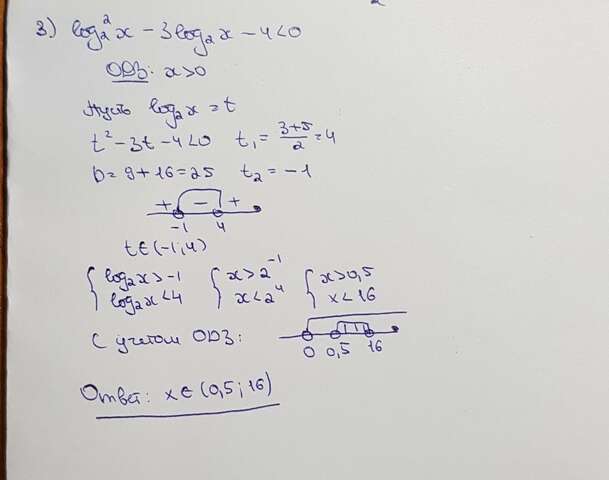 3) log₂²x − 3log₂x − 4 < 0
ОДЗ: x>0
Пусть log₂x = t
t² − 3t − 4 < 0 t₁ = (3+5)/2 = 4
D = 9 + 16 = 25 t₂ = −1
+ − +
−1 4
t ∈ (−1; 4)
{ log₂x > −1 { x > 2⁻¹ { x > 0,5
log₂x < 4 x < 2⁴ x < 16
С учетом ОДЗ:
0 0,5 16
Ответ: x ∈ (0,5; 16)